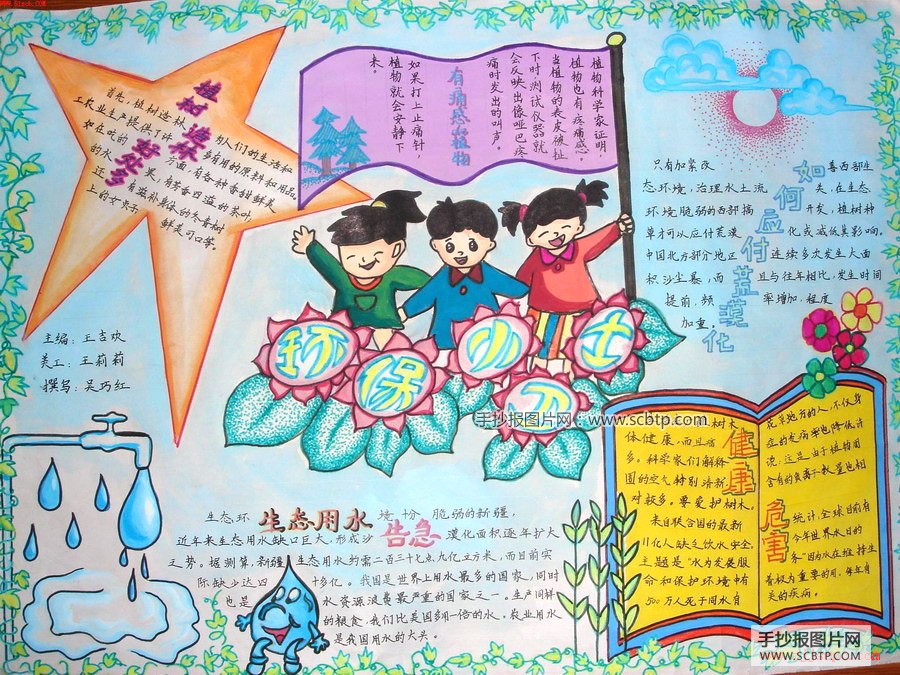 植树造林好处多
首先，植树造林
的女贞子
有痛感的植物
植物科学家证明
植物也有疼痛感。
当植物的表皮被扯
下时测试仪器就
会反映出像哑巴疼
痛时发出的叫声。
如果打上止痛针，
植物就会安静下
来。
如何应付荒漠化
只有加紧改善西部生
态环境，治理水土流失，在生态
环境脆弱的西部搞开发，植树种
草才可以应付荒漠化或减低其影响。
中国北方部分地区连续多次发生大面
积沙尘暴，而且与往年相比，发生时间
提前，频率增加，程度
加重。
主编：王吉欢
美工：王莉莉
撰写：吴巧红
环保小卫士
手抄报图片网：www.scbtp.com
生态用水告急
生态环境十分脆弱的新疆，
近年来生态用水缺口巨大，形成沙漠化面积逐年扩大
之势。据测算，新疆生态用水约需二百三十七点九亿立方米，而目前实
际缺少达四十多亿。我国是世界上用水最多的国家，同时
也是水资源浪费最严重的国家之一。生产同样
的粮食，我们比是国多用一倍的水。农业用水
是我国用水的大头。
健康
树木
体健康，而且
多。科学家们解释
园的空气特别清新
对较多。要爱护树木。
来自联合国的最新
11亿人缺乏饮水安全。
主题是“水为发展服
命和保护环境中有
500万人死于同水有
危害
花草跑步的人，不仅身
症的发病率也降低许
含有的负离子数量也相
统计，全球目前有
今年世界水日的
务”因为水在维持生
着极为重要的用。每年有
关的疾病。
手抄报图片网
WWW.SCBTP.COM